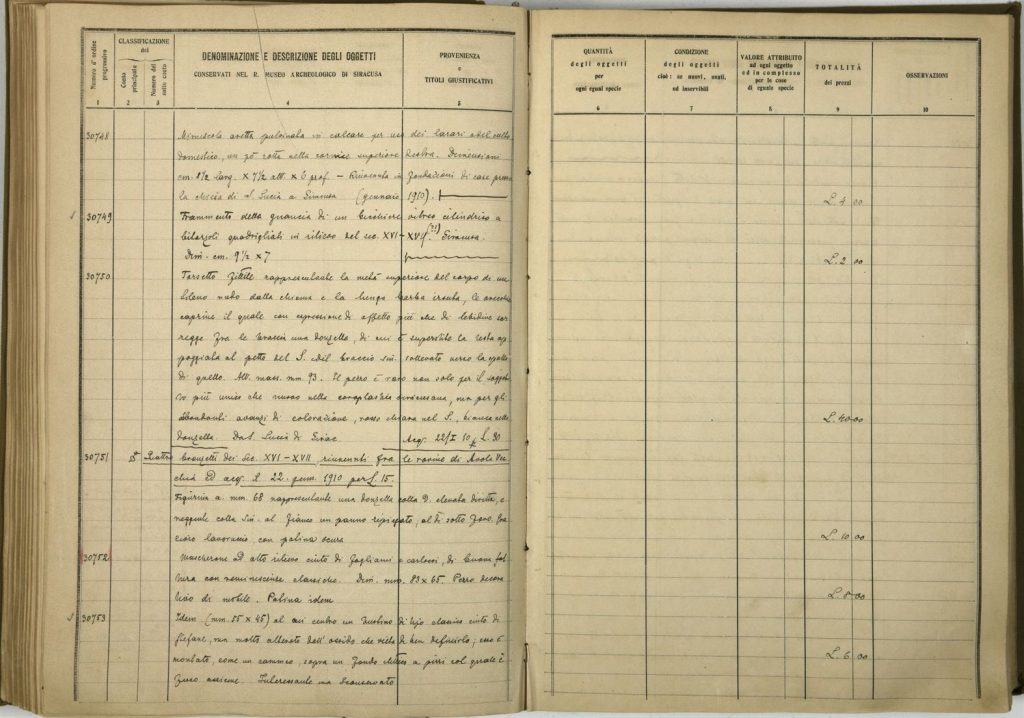 Numero d'ordine progressivo
CLASSIFICAZIONE
del
Conto principale
Numero del sotto conto
DENOMINAZIONE E DESCRIZIONE DEGLI OGGETTI
CONSERVATI NEL R. MUSEO ARCHEOLOGICO DI SIRACUSA
PROVENIENZA
e
TITOLI GIUSTIFICATIVI
1 2 3 4 5
30748 Minuscola aretta pulvinata in calcare per uso dei larari e del culto
domestico, un pò rotta nella cornice superiore destra. Dimensioni
cm. 8½ larg. × 7½ alt. × 6 prof. – Rinvenuta in fondazioni di case presso
la chiesa di S. Lucia a Siracusa (gennaio 1910).
30749 Frammento della guancia di un bicchiere vitreo cilindrico a
quadrigliati in rilievo del sec. XVI–XVII (??) Siracusa.
Dim. cm. 9½ × 7
30750 Torsetto fittile rappresentante la metà superiore del corpo di un
Sileno nudo dalla chioma e la lunga barba irsuta, le orecchie
caprine il quale con espressione di affetto più che di libidine sor
regge fra le braccia una donzella, di cui è superstite la testa ap
poggiata al petto del S. e del braccio sin. sollevato verso la spalla
di quello. Alt. mass. mm 93. Il pezzo è raro non solo per il sogget
to più unico che nuovo nella coroplastica siracusana, ma per gli
abbondanti avanzi di colorazione, rosso chiara nel S., bianca nella
donzella. Da S. Lucia di Sirac. Acq. 22/I 10 p. L. 30
30751 Quattro bronzetti dei sec. XVI–XVII rinvenuti fra le rovine di Avola Vec
chia ed acq. il 22 genn. 1910 per L. 15.
Figurina a. mm. 68 rappresentante una donzella colla D. elevata diretta, e
reggente colla sin. al fianco un panno ripiegato, al di sotto foro. Gra
zioso lavoruccio, con patina oscura
30752 Mascherone ad alto rilievo cinto di fogliami e cartocci, di buona fat
tura con reminiscenze classiche. Dim. mm. 83 × 65. Pezzo decora
tivo di mobile. Patina idem
30753 Idem (mm. 55 × 45) al cui centro un bustino di tipo classico cinto di
ma molto alterato dall'ossido che vieta di ben definirlo; esso è
montato, come un cammeo, sopra un fondo a giri col quale è
fuso assieme. Interessante ma sconservato
QUANTITÀ
degli oggetti
per
ogni egual specie
CONDIZIONE
degli oggetti
cioè: se nuovi, usati,
od inservibili
VALORE ATTRIBUITO
ad ogni oggetto
ed in complesso
per le cose
di eguale specie
TOTALITÀ
dei prezzi
OSSERVAZIONI
6 7 8 9 10
L. 4 00
L. 2 00
L. 40 00
L. 10 00
L. 8 00
L. 6 00